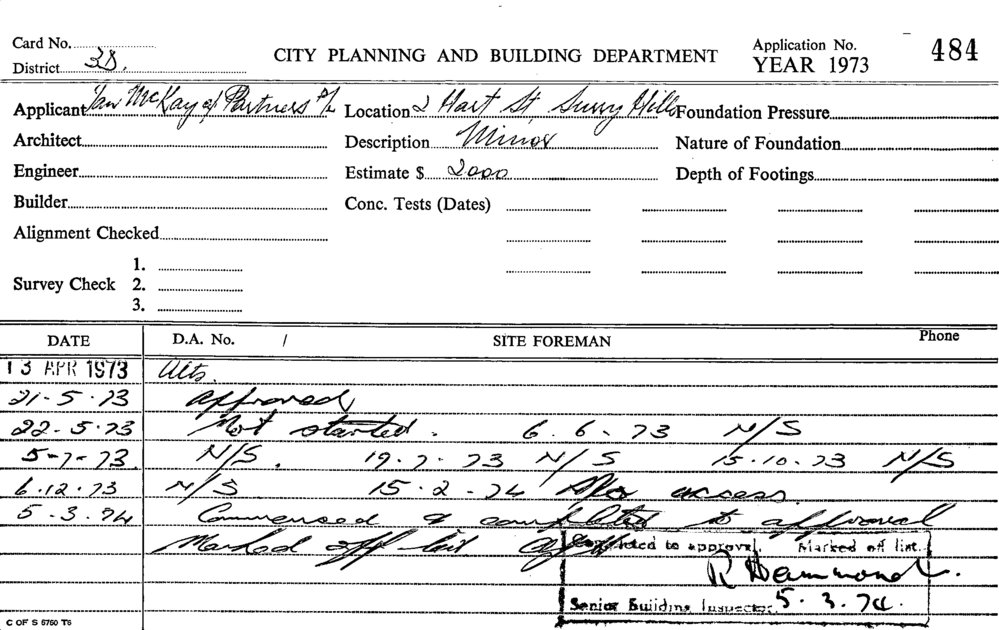 Card No.
District 3B.
CITY PLANNING AND BUILDING DEPARTMENT
Application No. 484
YEAR 1973
Applicant Ian McKay & Partners P/L Location 2 Hart St, Surry Hills Foundation Pressure
Architect Description Minor Nature of Foundation
Engineer Estimate $ 2000 Depth of Footings
Builder Conc. Tests (Dates)
Alignment Checked
1.
Survey Check 2.
3.
DATE D.A. No. / SITE FOREMAN Phone
13 APR 1973 Alts.
21-5-73 Approved
22-5-73 Not started. 6.6.73 N/S
5-7-73. N/S. 19.7.73 N/S 15.10.73 N/S
6.12.73 N/S 15.2.74 No access.
5.3.74 Commenced & completed to approval
Marked off list
Completed to approval. Marked off list.
R Hammond.
Senior Building Inspector 5.3.74.
C OF S 5750 T6